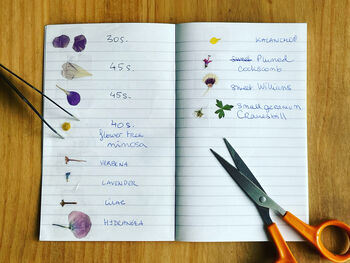 30s.
45s.
45s.
40s.
flower tree
mimosa
VERBENA
LAVENDER
LILAC
HYDRANGEA
KALANCHOE
Plumed
cockscomb
sweet Williams
small geranium
Cranesbill